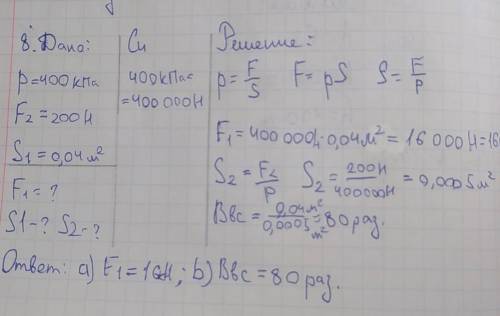 8. Дано:
p=400 кПа
F₂=200Н
S₁=0,04м²
F₁=?
S1-? S2-?
Си
400кПа=
=400 000Н
Решение:
p=F/S F=pS S=F/P
F₁=400 000Н·0,04м²=16 000Н=16
S₂=F₂/P S₂=200Н/400000Н=0,0005м²
Ввс=0,04м²/0,0005м²=80 раз.
Ответ: а) F₁=16Н; b) Ввс=80 раз.